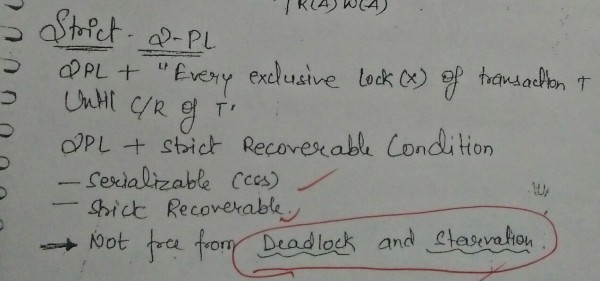 R(A) W(A)
Strict - 2-PL
2PL + "Every exclusive Lock (X) of transaction T
Until C/R of T'
2PL + Strict Recoverable Condition
- Serializable (CCS) ✓
- Strict Recoverable. ✓
→ Not free from Deadlock and Starvation.